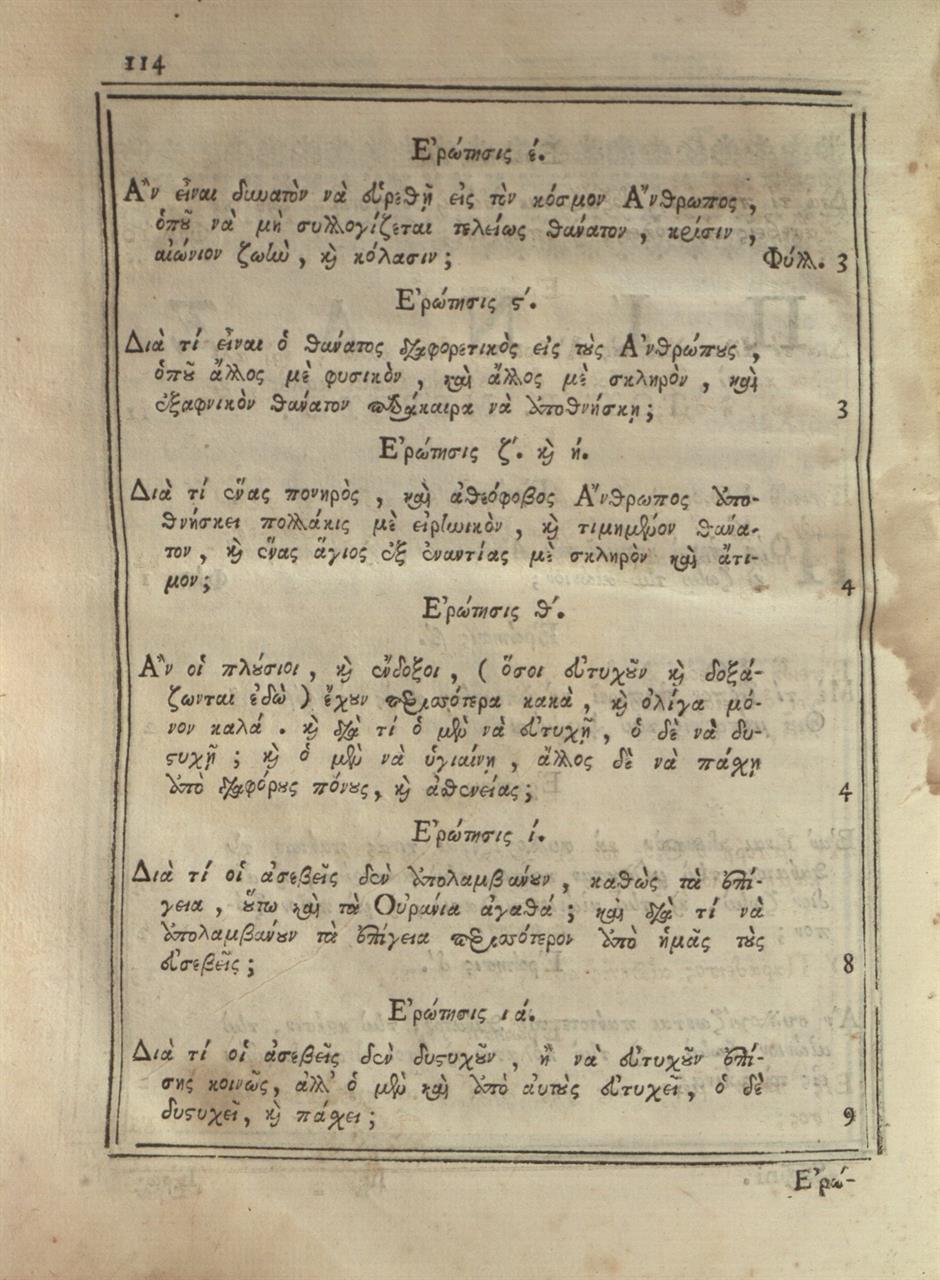 114
Ἐρώτησις έ.
Ἂν εἶναι δυνατὸν νὰ εὑρεθῇ εἰς τὸν κόσμον Ἄνθρωπος,
ὁποῦ νὰ μὴ συλλογίζεται τελείως θάνατον, κρίσιν,
αἰώνιον ζωὴν, κὴ κόλασιν; Φύλλ. 3
Ἐρώτησις ϛ΄.
Διὰ τί εἶναι ὁ θάνατος διαφορετικὸς εἰς τοὺς Ἀνθρώπους,
ὁποῦ ἄλλος μὲ φυσικὸν, καὶ ἄλλος μὲ σκληρὸν, καὶ
ἐξαφνικὸν θάνατον παράκαιρα νὰ ἀποθνήσκῃ; 3
Ἐρώτησις ζ΄. καὶ ή.
Διὰ τί ἕνας πονηρὸς, καὶ ἀθεόφοβος Ἄνθρωπος ἀπο-
θνήσκει πολλάκις μὲ εἰρηνικὸν, καὶ τιμημένον θάνα-
τον, καὶ ἕνας ἅγιος ἐξ ἐναντίας μὲ σκληρὸν καὶ ἄτι-
μον; 4
Ἐρώτησις θ΄.
Ἂν οἱ πλούσιοι, καὶ ἔνδοξοι, (ὅσοι εὐτυχοῦν καὶ δοξά-
ζωνται ἐδὼ) ἔχουν περισσότερα κακὰ, καὶ ὀλίγα μό-
νον καλά. καὶ διὰ τί ὁ μὲν νὰ εὐτυχῇ, ὁ δὲ νὰ δυ-
στυχῇ; καὶ ὁ μὲν νὰ ὑγιαίνῃ, ἄλλος δὲ νὰ πάσχῃ
ἀπὸ διαφόρους πόνους, καὶ ἀσθενείας; 4
Ἐρώτησις ί.
Διὰ τί οἱ ἀσεβεῖς δὲν ἀπολαμβάνουν, καθὼς τὰ ἐπί-
γεια, οὕτω καὶ τὰ Οὐράνια ἀγαθά; καὶ διὰ τί νὰ
ἀπολαμβάνουν τὰ ἐπίγεια περισσότερον ἀπὸ ἡμᾶς τοὺς
εὐσεβεῖς; 8
Ἐρώτησις ιά.
Διὰ τί οἱ ἀσεβεῖς δὲν δυστυχοῦν, ἢ νὰ εὐτυχοῦν ἐπί-
σης κοινῶς, ἀλλ' ὁ μὲν καὶ ἀπὸ αὐτοὺς εὐτυχεῖ, ὁ δὲ
δυστυχεῖ, καὶ πάσχει; 9
Ἐρώ-